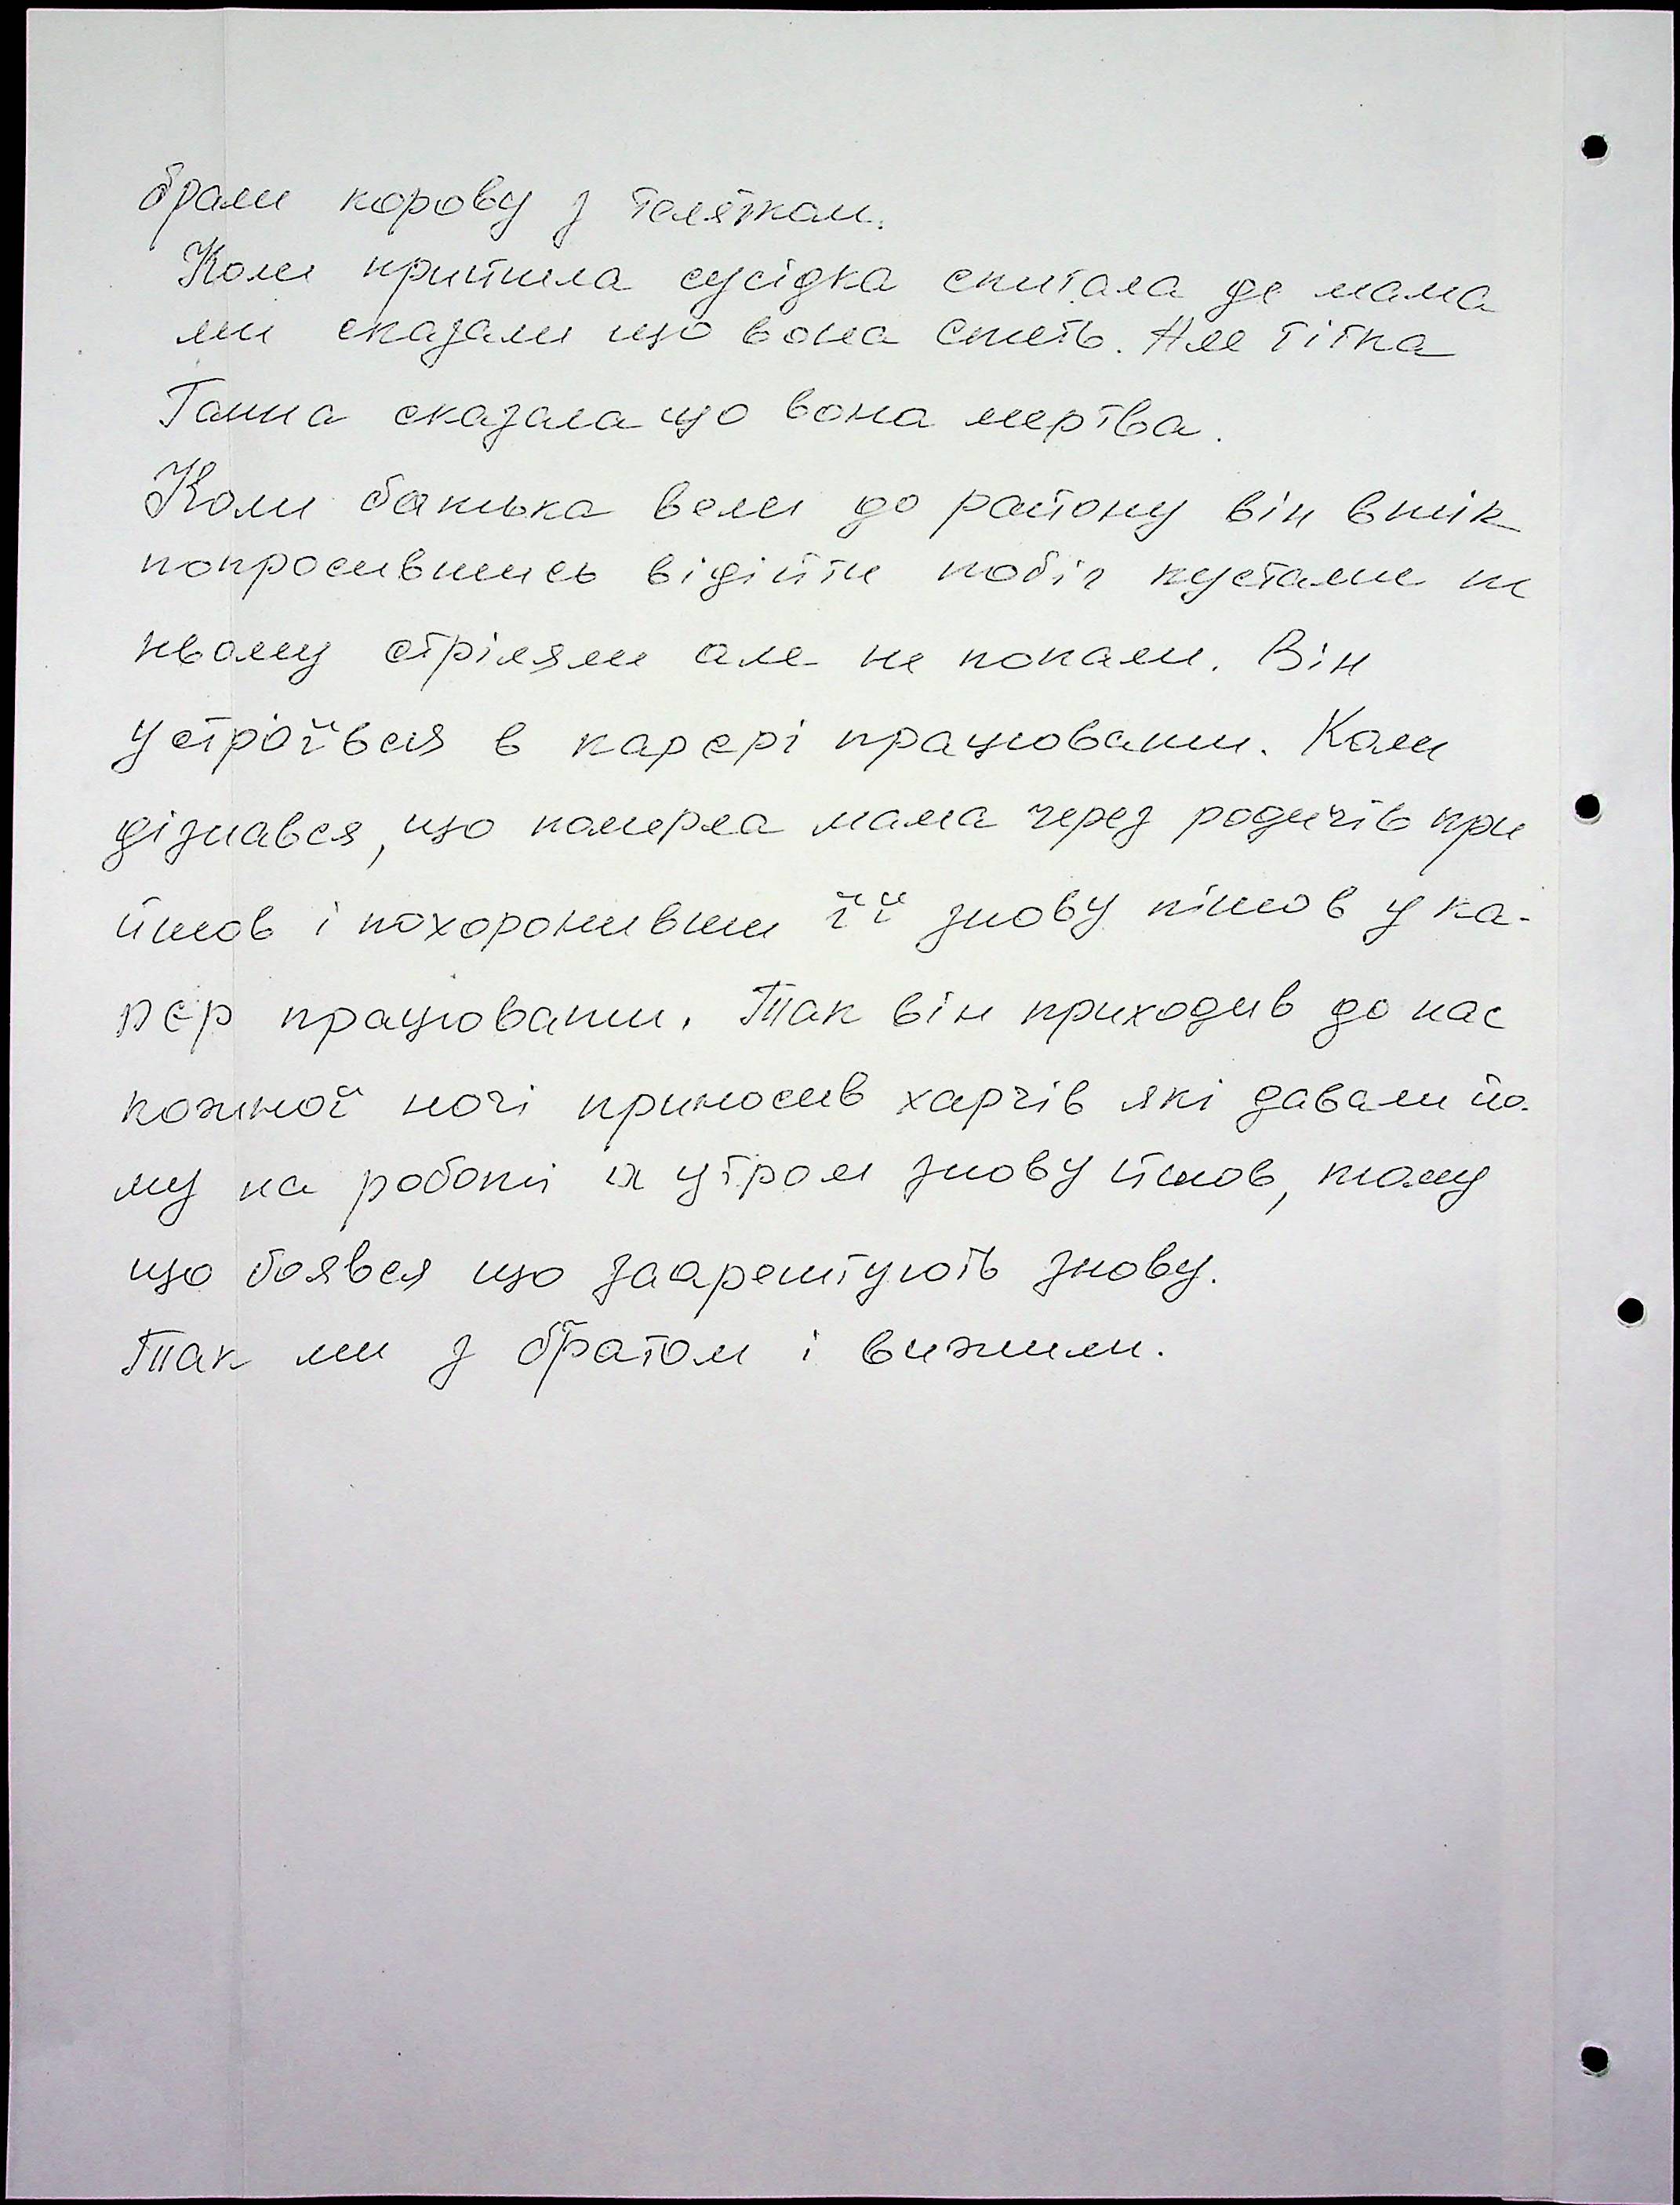 брали корову з телятком.
Коли прийшла сусідка спитала де мама
ми сказали що вона спить. Але тітка
Ганна сказала що вона мертва.
Коли батька вели до району він втік
попросившись відійти побіг кустами по
ньому стріляли але не попали. Він
устроївся в карєрі працювати. Коли
дізнався, що померла мама через родичів при
йшов і похоронивши її знову пішов у ка-
рєр працювати. Так він приходив до нас
кожної ночі приносив харчів які давали йо-
му на роботі а утром знову йшов, тому
що боявся що заарештують знову.
Так ми з братом і вижили.